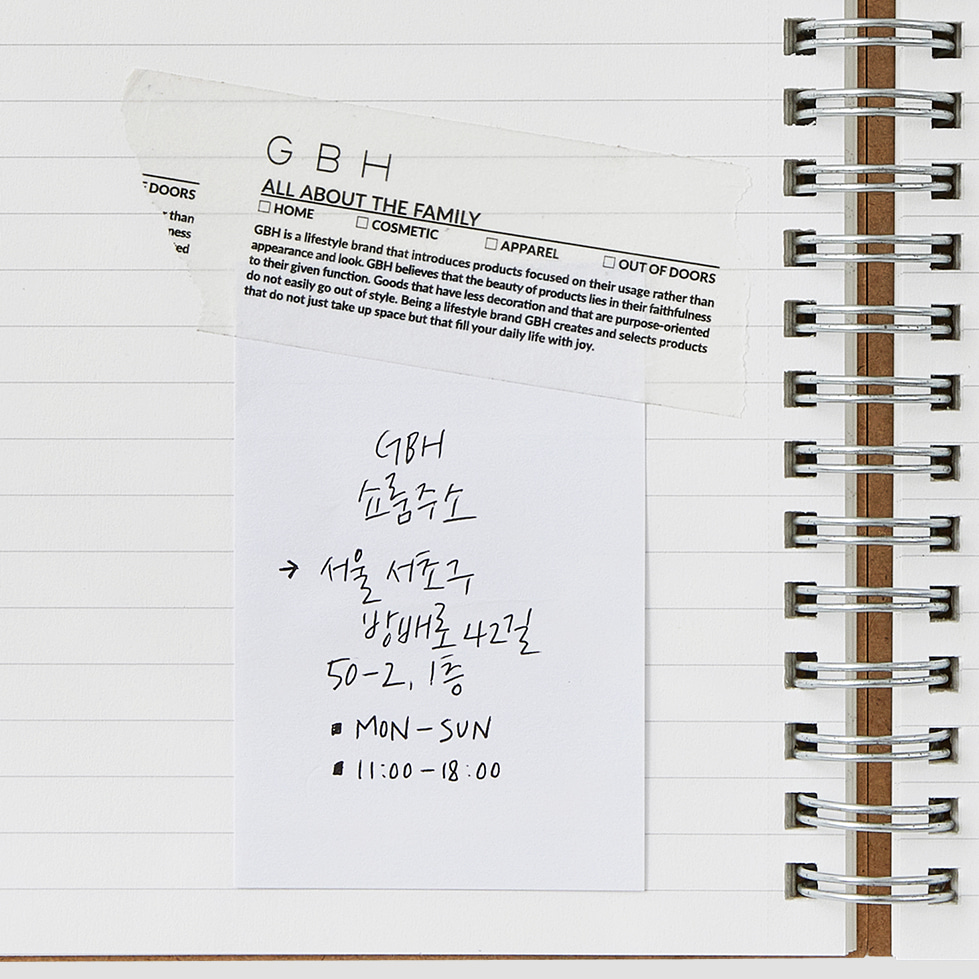 GBH
ALL ABOUT THE FAMILY
☐ HOME ☐ COSMETIC ☐ APPAREL ☐ OUT OF DOORS
GBH is a lifestyle brand that introduces products focused on their usage rather than
appearance and look. GBH believes that the beauty of products lies in their faithfulness
to their given function. Goods that have less decoration and that are purpose-oriented
do not easily go out of style. Being a lifestyle brand GBH creates and selects products
that do not just take up space but that fill your daily life with joy.
F DOORS
than
ness
ed
GBH
쇼룸주소
→ 서울 서초구
방배로 42길
50-2, 1층
▪ MON-SUN
▪ 11:00-18:00